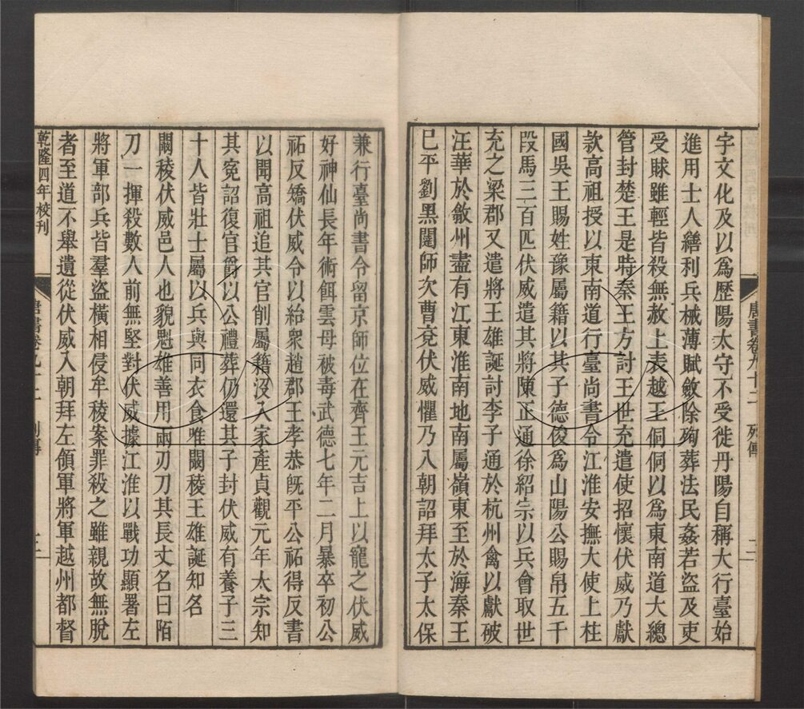 唐書卷九十二 列傳 二
宇文化及以爲歷陽太守不受徙丹陽自稱大行臺始
進用士人繕利兵械薄賦斂除殉葬法民姦若盜及吏
受賕雖輕皆殺無赦上表越王侗侗以爲東南道大總
管封楚王是時秦王方討王世充遣使招懷伏威乃獻
款高祖授以東南道行臺尚書令江淮安撫大使上柱
國吳王賜姓豫屬籍以其子德俊爲山陽公賜帛五千
段馬三百匹伏威遣其將陳正通徐紹宗以兵會取世
充之梁郡又遣將王雄誕討李子通於杭州禽以獻破
汪華於歙州盡有江東淮南地南屬嶺東至於海秦王
已平劉黑闥師次曹兗伏威懼乃入朝詔拜太子太保
兼行臺尚書令留京師位在齊王元吉上以寵之伏威
好神仙長年術餌雲母被毒武德七年二月暴卒初公
祏反矯伏威令以紿衆趙郡王孝恭旣平公祏得反書
以聞高祖追其官削屬籍沒入家產貞觀元年太宗知
其冤詔復官爵以公禮葬仍還其子封伏威有養子三
十人皆壯士屬以兵與同衣食唯闞稜王雄誕知名
闞稜伏威邑人也貌魁雄善用兩刃刀其長丈名曰陌
刀一揮殺數人前無堅對伏威據江淮以戰功顯署左
將軍部兵皆羣盜橫相侵牟稜案罪殺之雖親故無脫
者至道不舉遺從伏威入朝拜左領軍將軍越州都督
乾隆四年校刊 唐書卷九十二 列傳